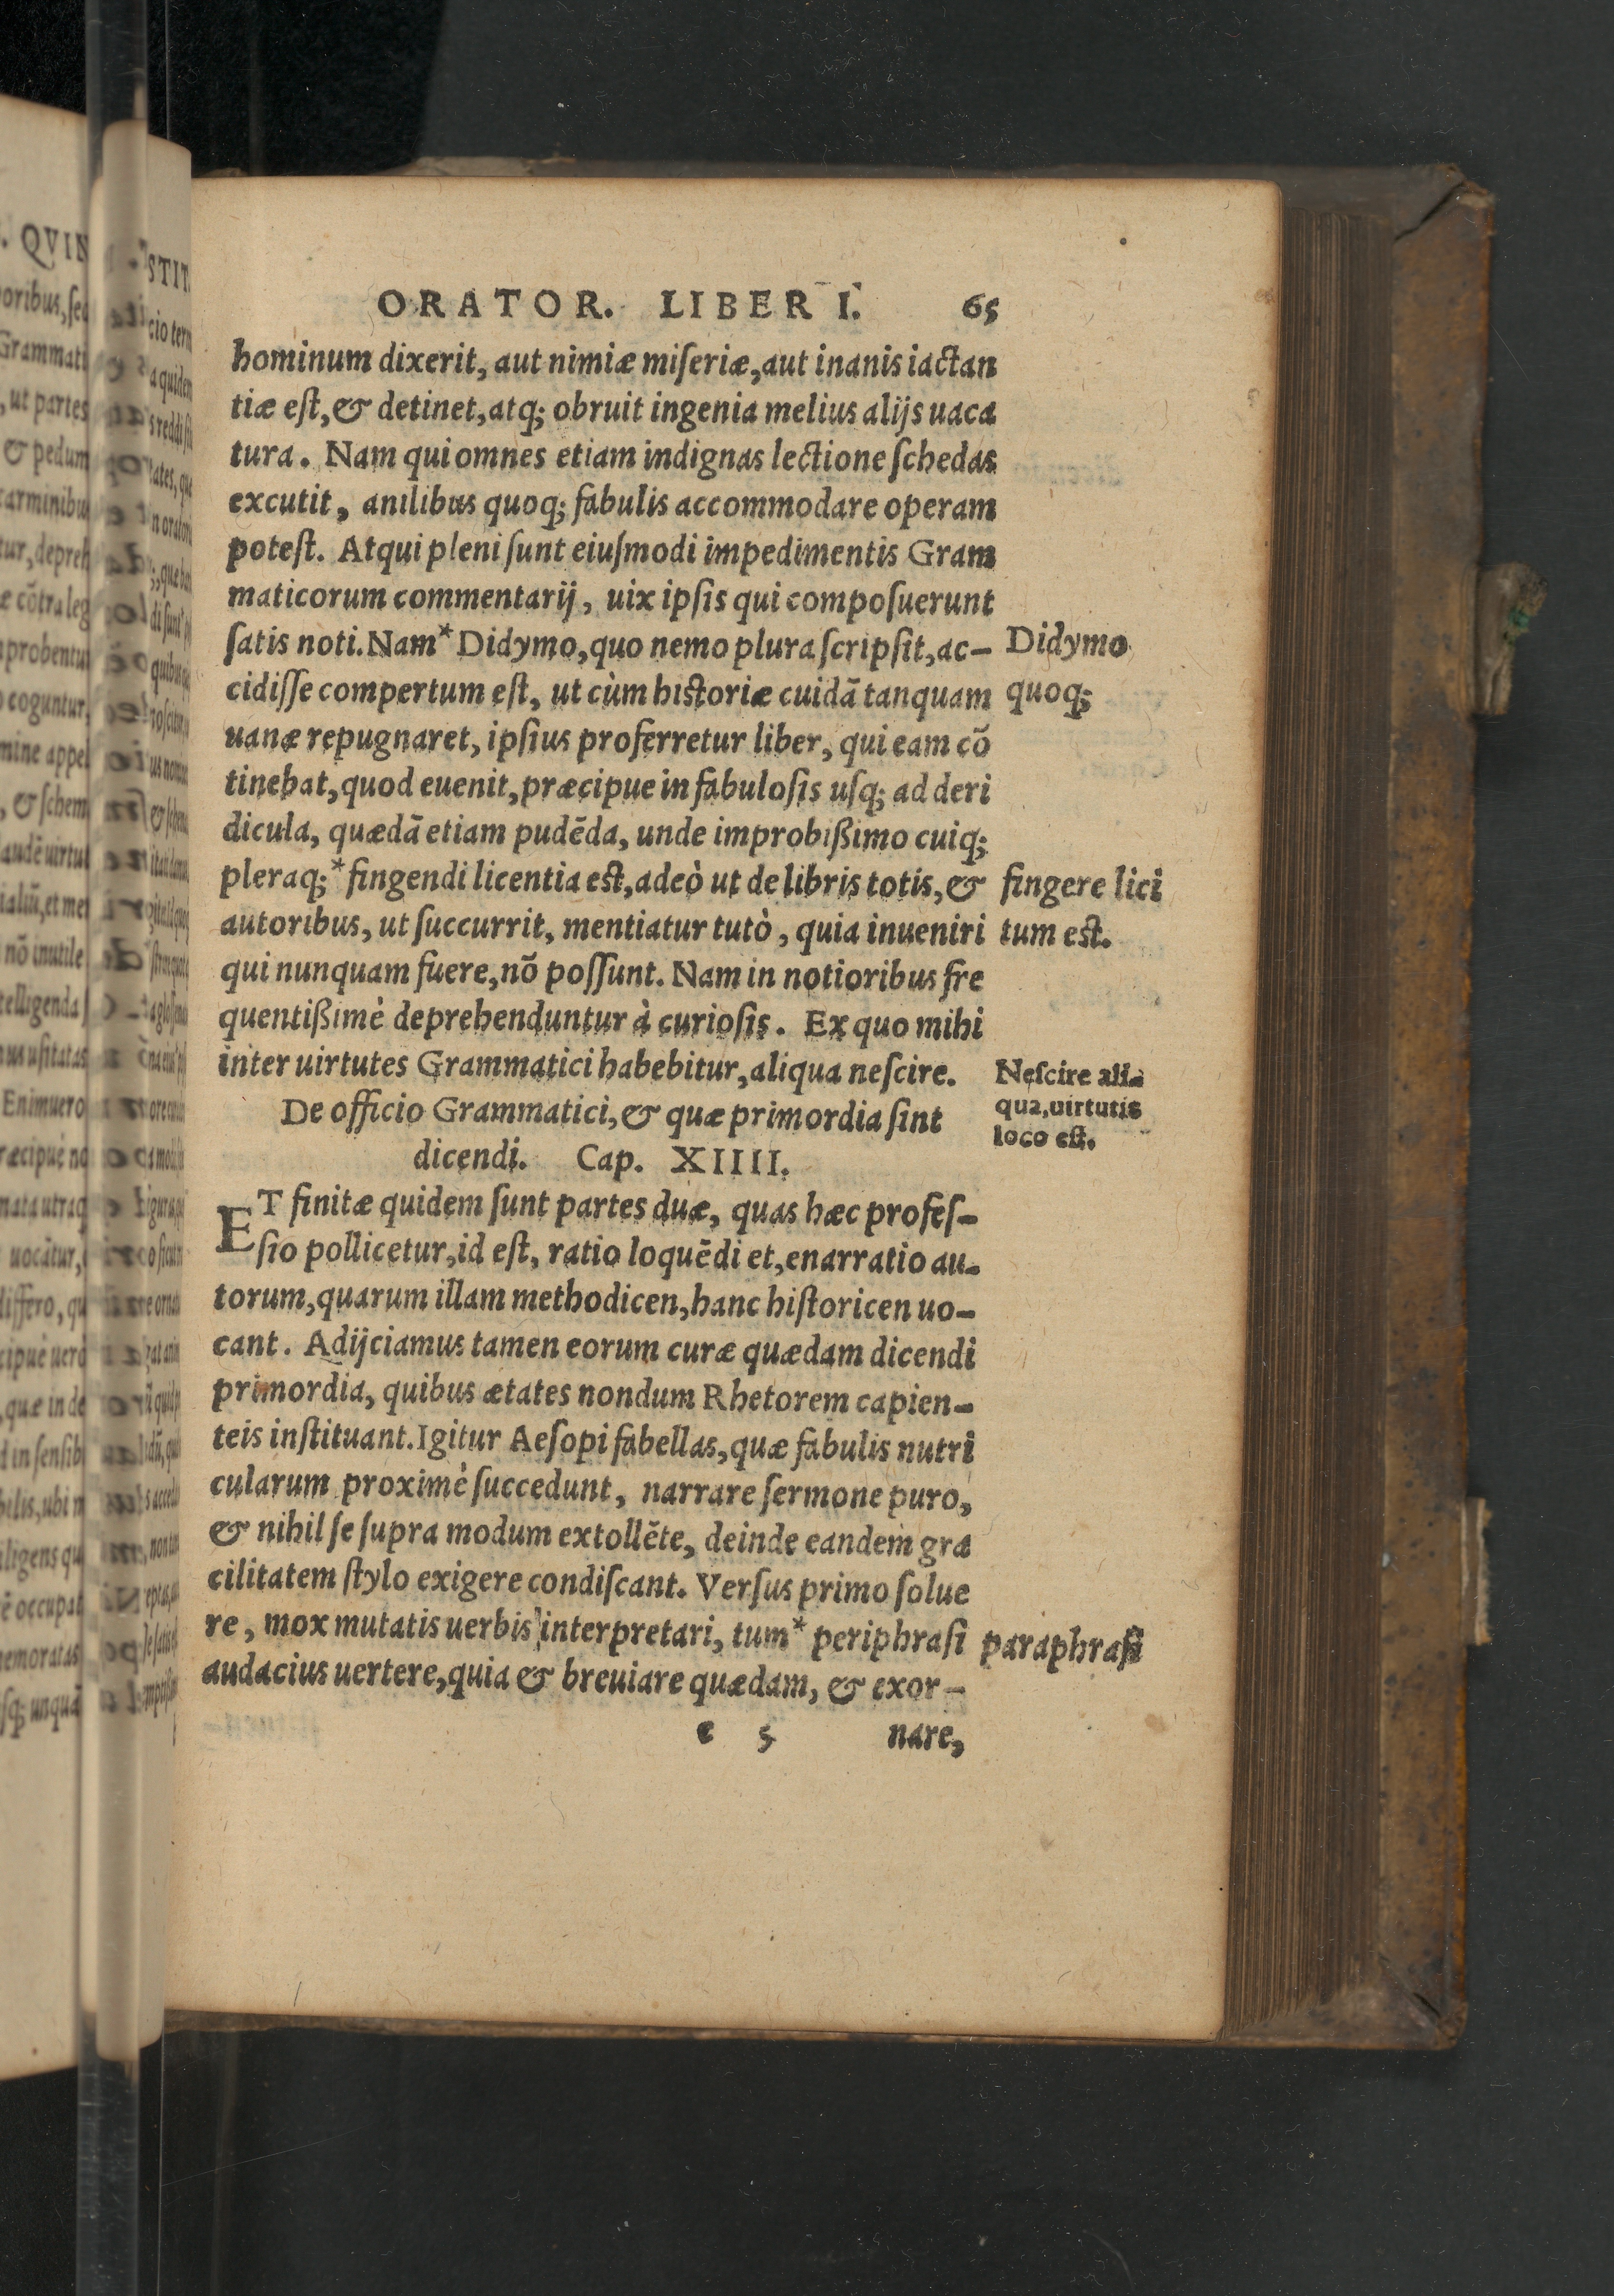 ORATOR. LIBER I. 65
hominum dixerit, aut nimiæ miſeriæ, aut inanis iactan
tiæ eſt, & detinet, atq; obruit ingenia melius alijs uaca
tura. Nam qui omnes etiam indignas lectione ſchedas
excutit, anilibus quoq; fabulis accommodare operam
poteſt. Atqui pleni ſunt eiuſmodi impedimentis Gram
maticorum commentarij, uix ipſis qui compoſuerunt
ſatis noti. Nam* Didymo, quo nemo plura ſcripſit, ac-
cidiſſe compertum eſt, ut cùm hiſtoriæ cuidā tanquam
uanæ repugnaret, ipſius proferretur liber, qui eam cō
tinebat, quod euenit, præcipue in fabuloſis uſq; ad deri
dicula, quædā etiam pudēda, unde improbißimo cuiq;
pleraq; *fingendi licentia eſt, adeò ut de libris totis, &
autoribus, ut ſuccurrit, mentiatur tutò, quia inueniri
qui nunquam fuere, nō poſſunt. Nam in notioribus fre
quentißimè deprehenduntur à curioſis. Ex quo mihi
inter uirtutes Grammatici habebitur, aliqua neſcire.
De officio Grammatici, & quæ primordia ſint
dicendi. Cap. XIIII.
ET finitæ quidem ſunt partes duæ, quas hæc profeſ-
ſio pollicetur, id eſt, ratio loquēdi et, enarratio au-
torum, quarum illam methodicen, hanc hiſtoricen uo-
cant. Adijciamus tamen eorum curæ quædam dicendi
primordia, quibus ætates nondum Rhetorem capien-
teis inſtituant. Igitur Aeſopi fabellas, quæ fabulis nutri
cularum proximè ſuccedunt, narrare ſermone puro,
& nihil ſe ſupra modum extollēte, deinde eandem gra
cilitatem ſtylo exigere condiſcant. Verſus primo ſolue
re, mox mutatis uerbis interpretari, tum* periphraſi
audacius uertere, quia & breuiare quædam, & exor-
e 5 nare,
Didymo
quoq;
fingere lici
tum eſt.
Neſcire ali-
qua, uirtutis
loco eſt.
paraphraſi